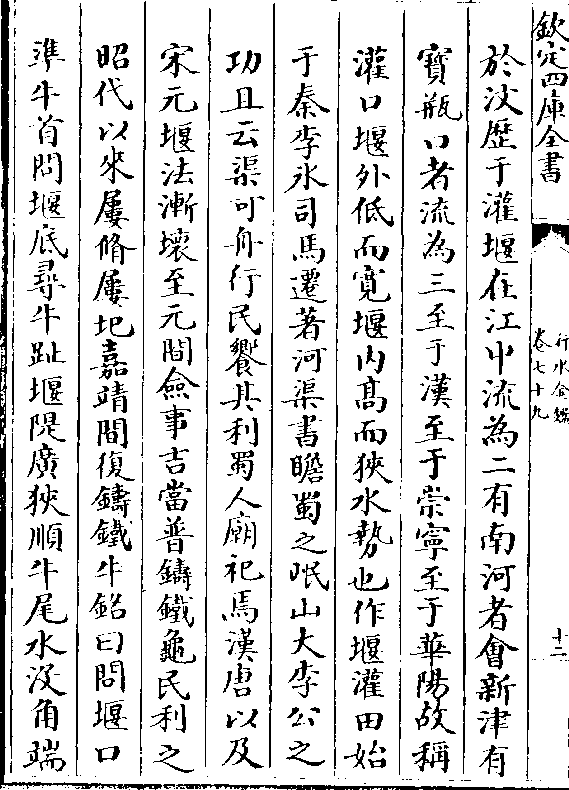 欽定四庫全書
行水金鑑
卷七十九
十二
於汶歴于灌堰在江中流為二有南河者會新津有
寶瓶口者流為三至于漢至于崇寧至于華陽故稱
灌口堰外低而寛堰内髙而狹水勢也作堰灌田始
于秦李氷司馬遷著河渠書瞻蜀之岷山大李公之
功且云渠可舟行民饗其利蜀人廟祀焉漢唐以及
宋元堰法漸壊至元間僉事吉當普鑄鐵龜民利之
昭代以來屢脩屢圮嘉靖間復鑄鐵牛銘曰問堰口
準牛首問堰底尋牛趾堰隄廣狹順牛尾水没角端